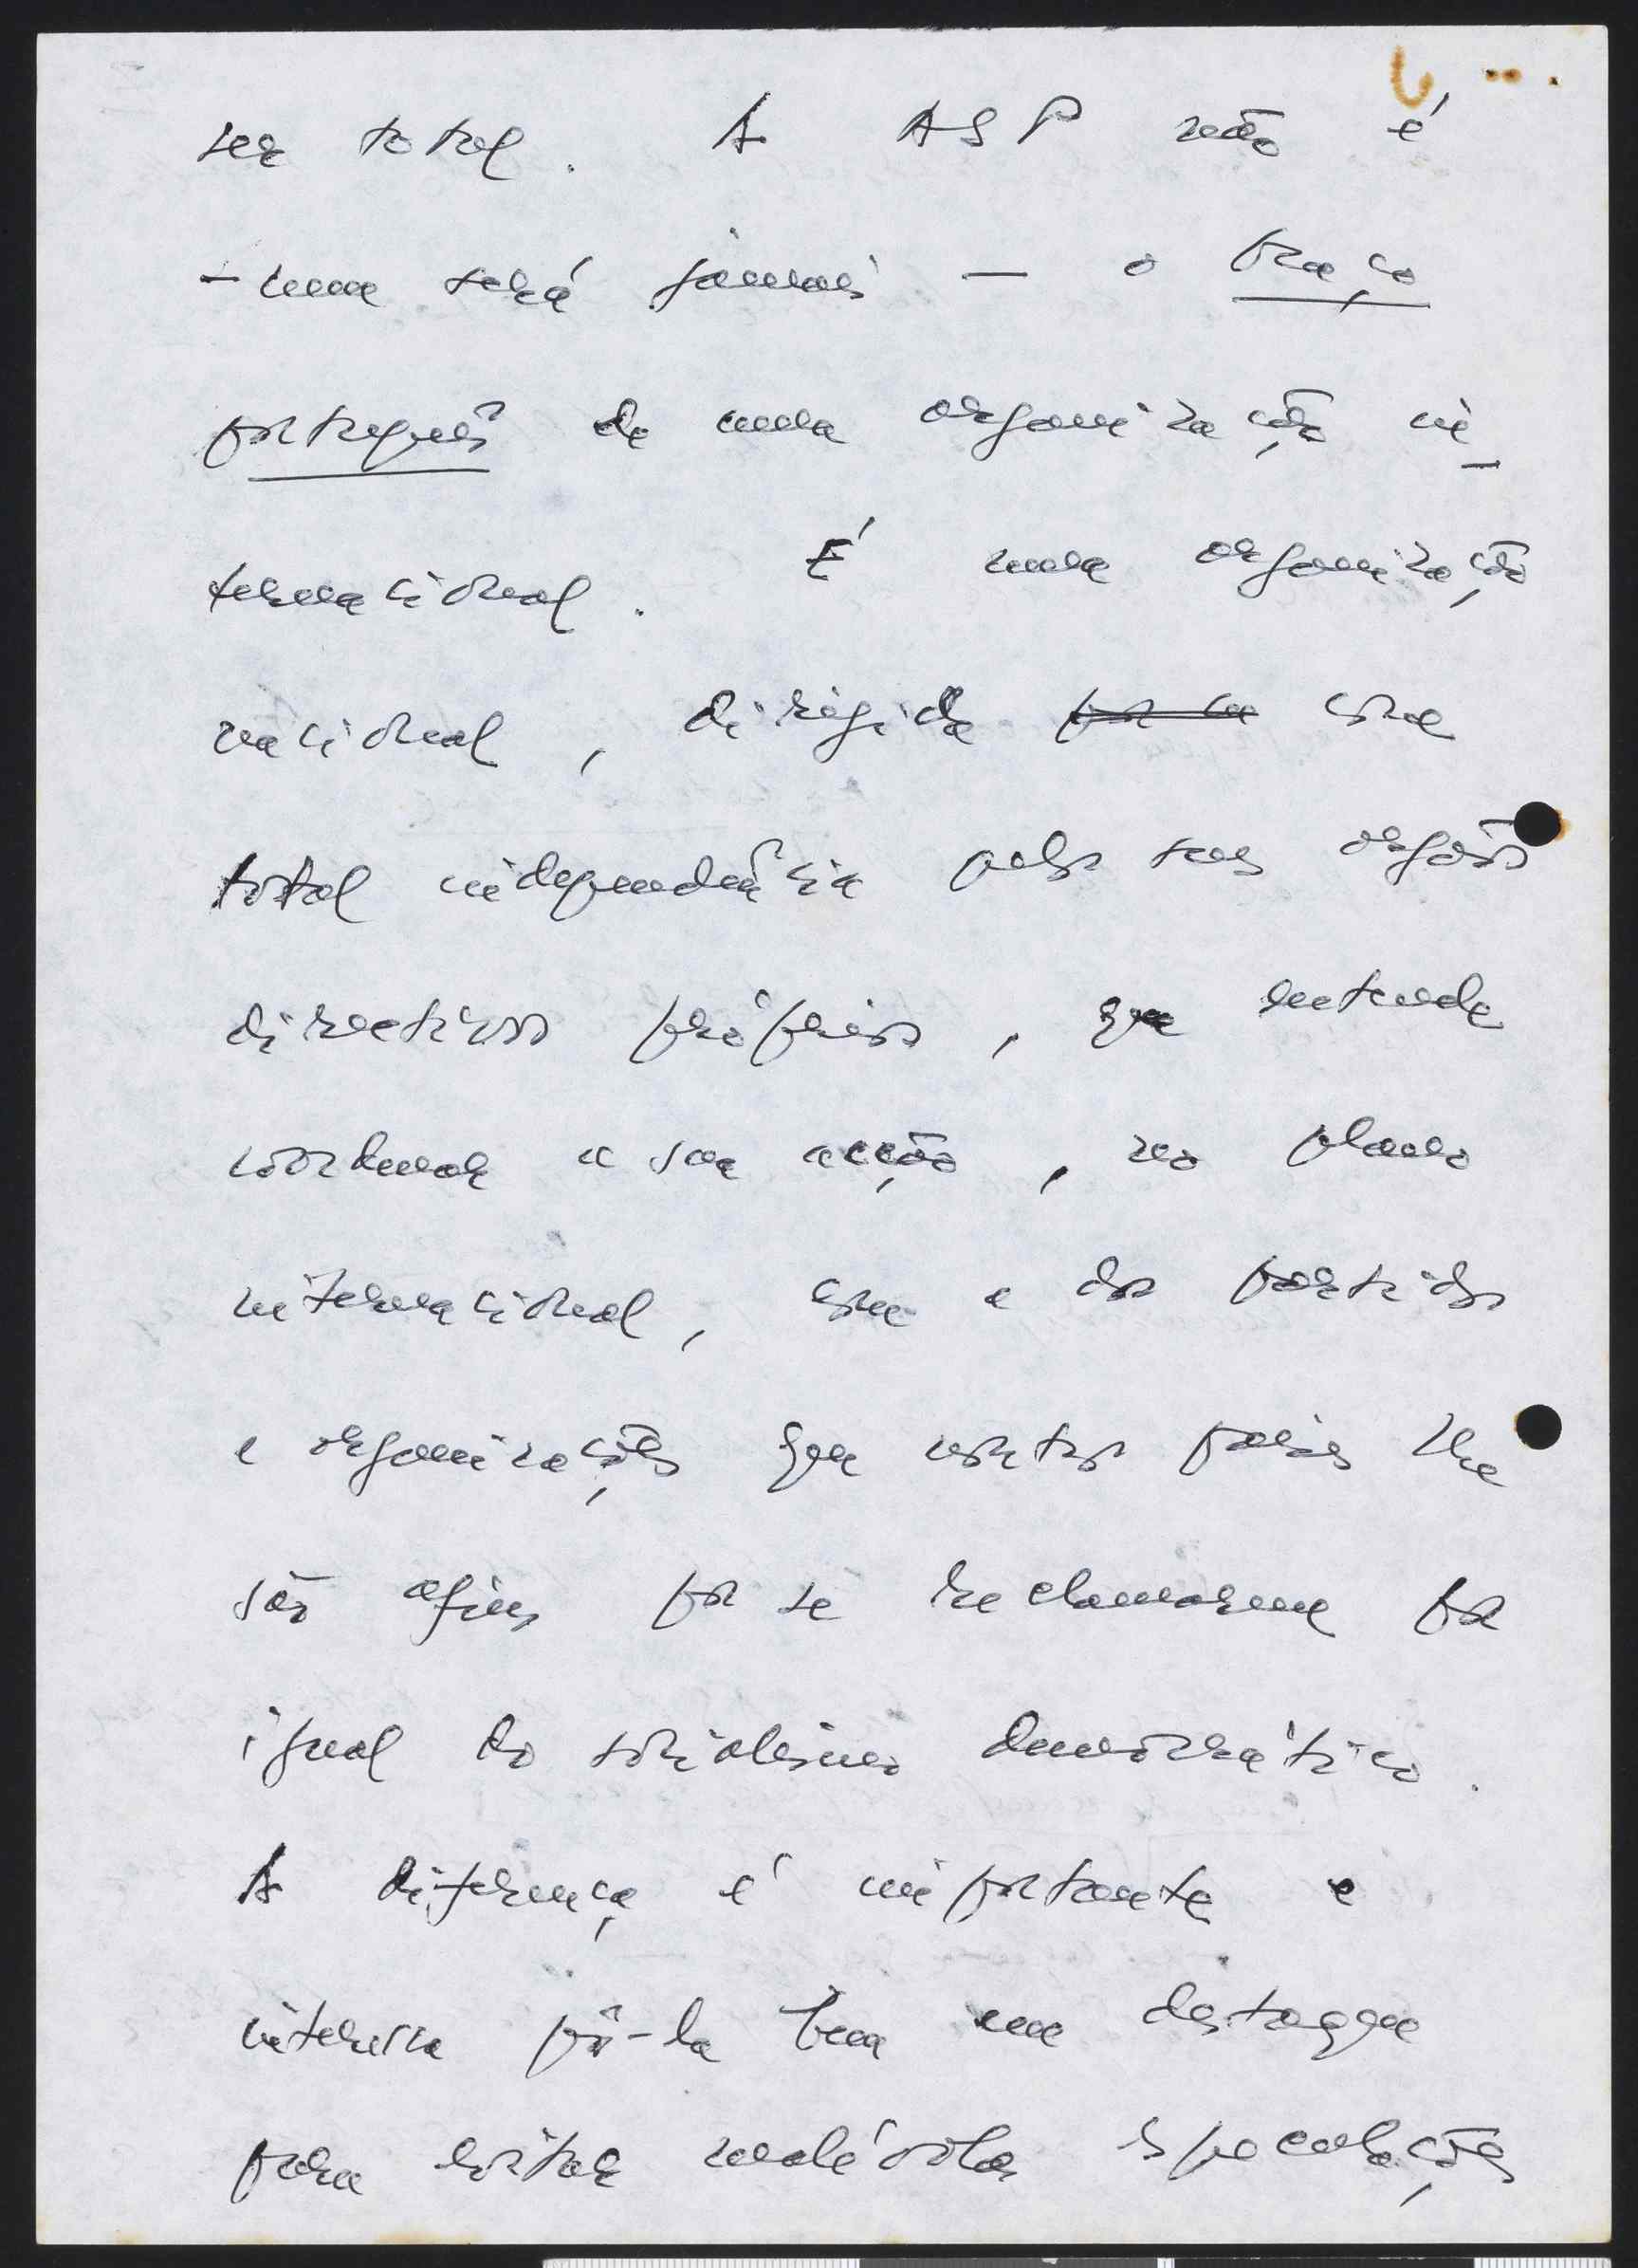 ser total. A ASP não é
– nem será jamais – o braço
português de uma organização in-
ternacional. É uma organização
nacional, dirigida por su com
total independência pelos seus orgãos
directivos próprios, que entende
coordenar a sua acção, no plano
internacional, com a dos partidos
e organizações que noutros países lhe
são afins por se reclamarem por
igual do socialismo democrático.
A diferença é importante e
interessa pô-la bem em destaque
para evitar malévolas especulações